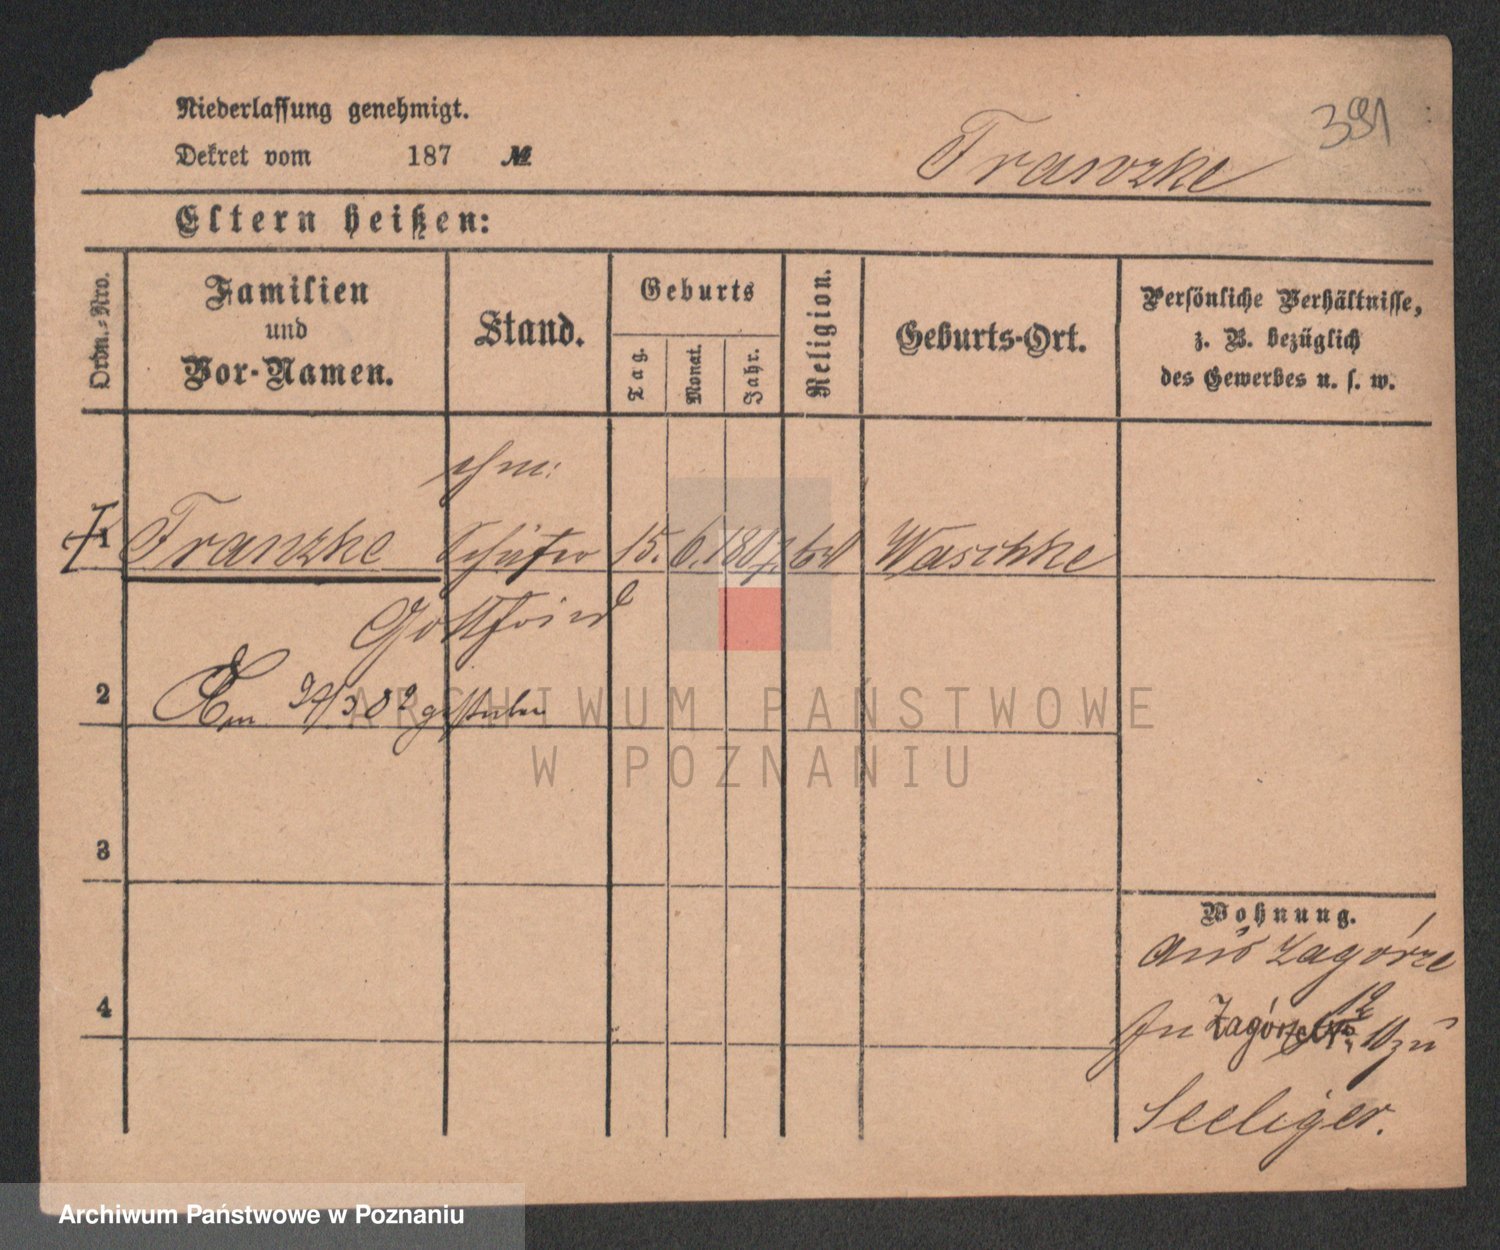 391
Niederlassung genehmigt.
Dekret vom 187 №
Franzke
Eltern heißen:
Ordn.-Nro.
Familien
und
Vor-Namen.
Stand.
Geburts
Tag.
Monat.
Jahr.
Religion.
Geburts-Ort.
Persönliche Verhältnisse,
z. B. bezüglich
des Gewerbes u. s. w.
ehm:
1 Franzke Schäfer 15. 6. 1807 Waschke
Gottfried
2 Am gestorben
3
4
Wohnung.
aus Zagórze
In Zagórze 12 10 zu
Seeliger.
ARCHIWUM PAŃSTWOWE
W POZNANIU
Archiwum Państwowe w Poznaniu